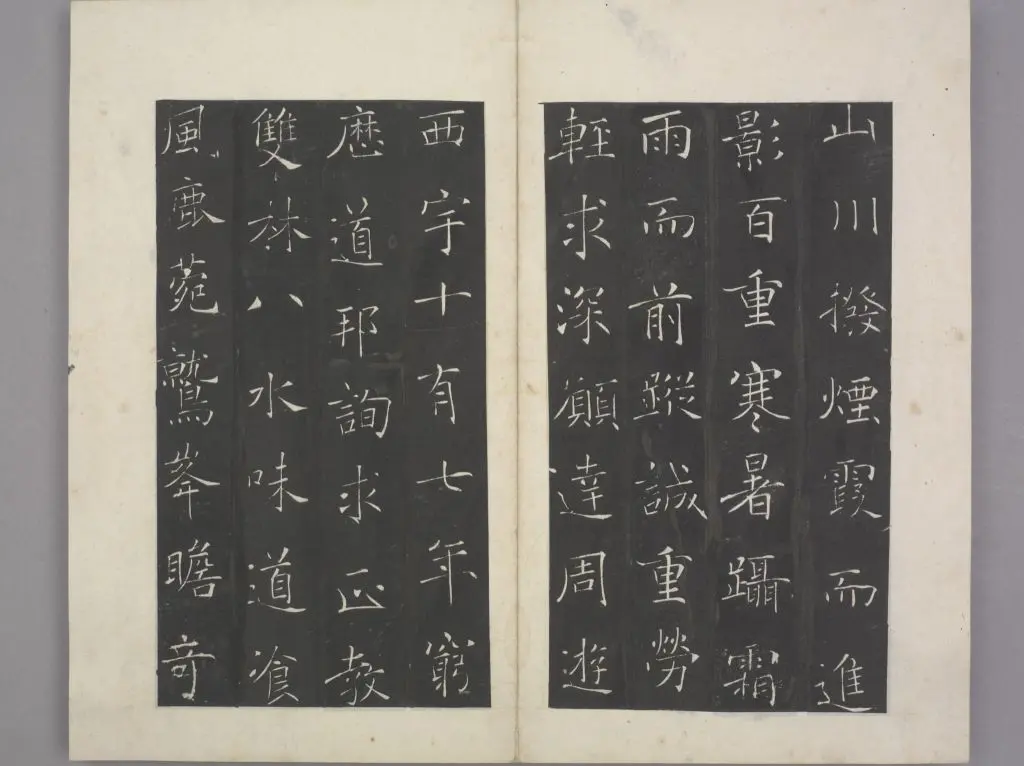 山川撥煙霞而進
影百重寒暑躡霜
雨而前蹤誠重勞
輕求深願達周遊
西宇十有七年窮
歷道邦詢求正教
雙林八水味道飡
風鹿菀鷲峯瞻奇